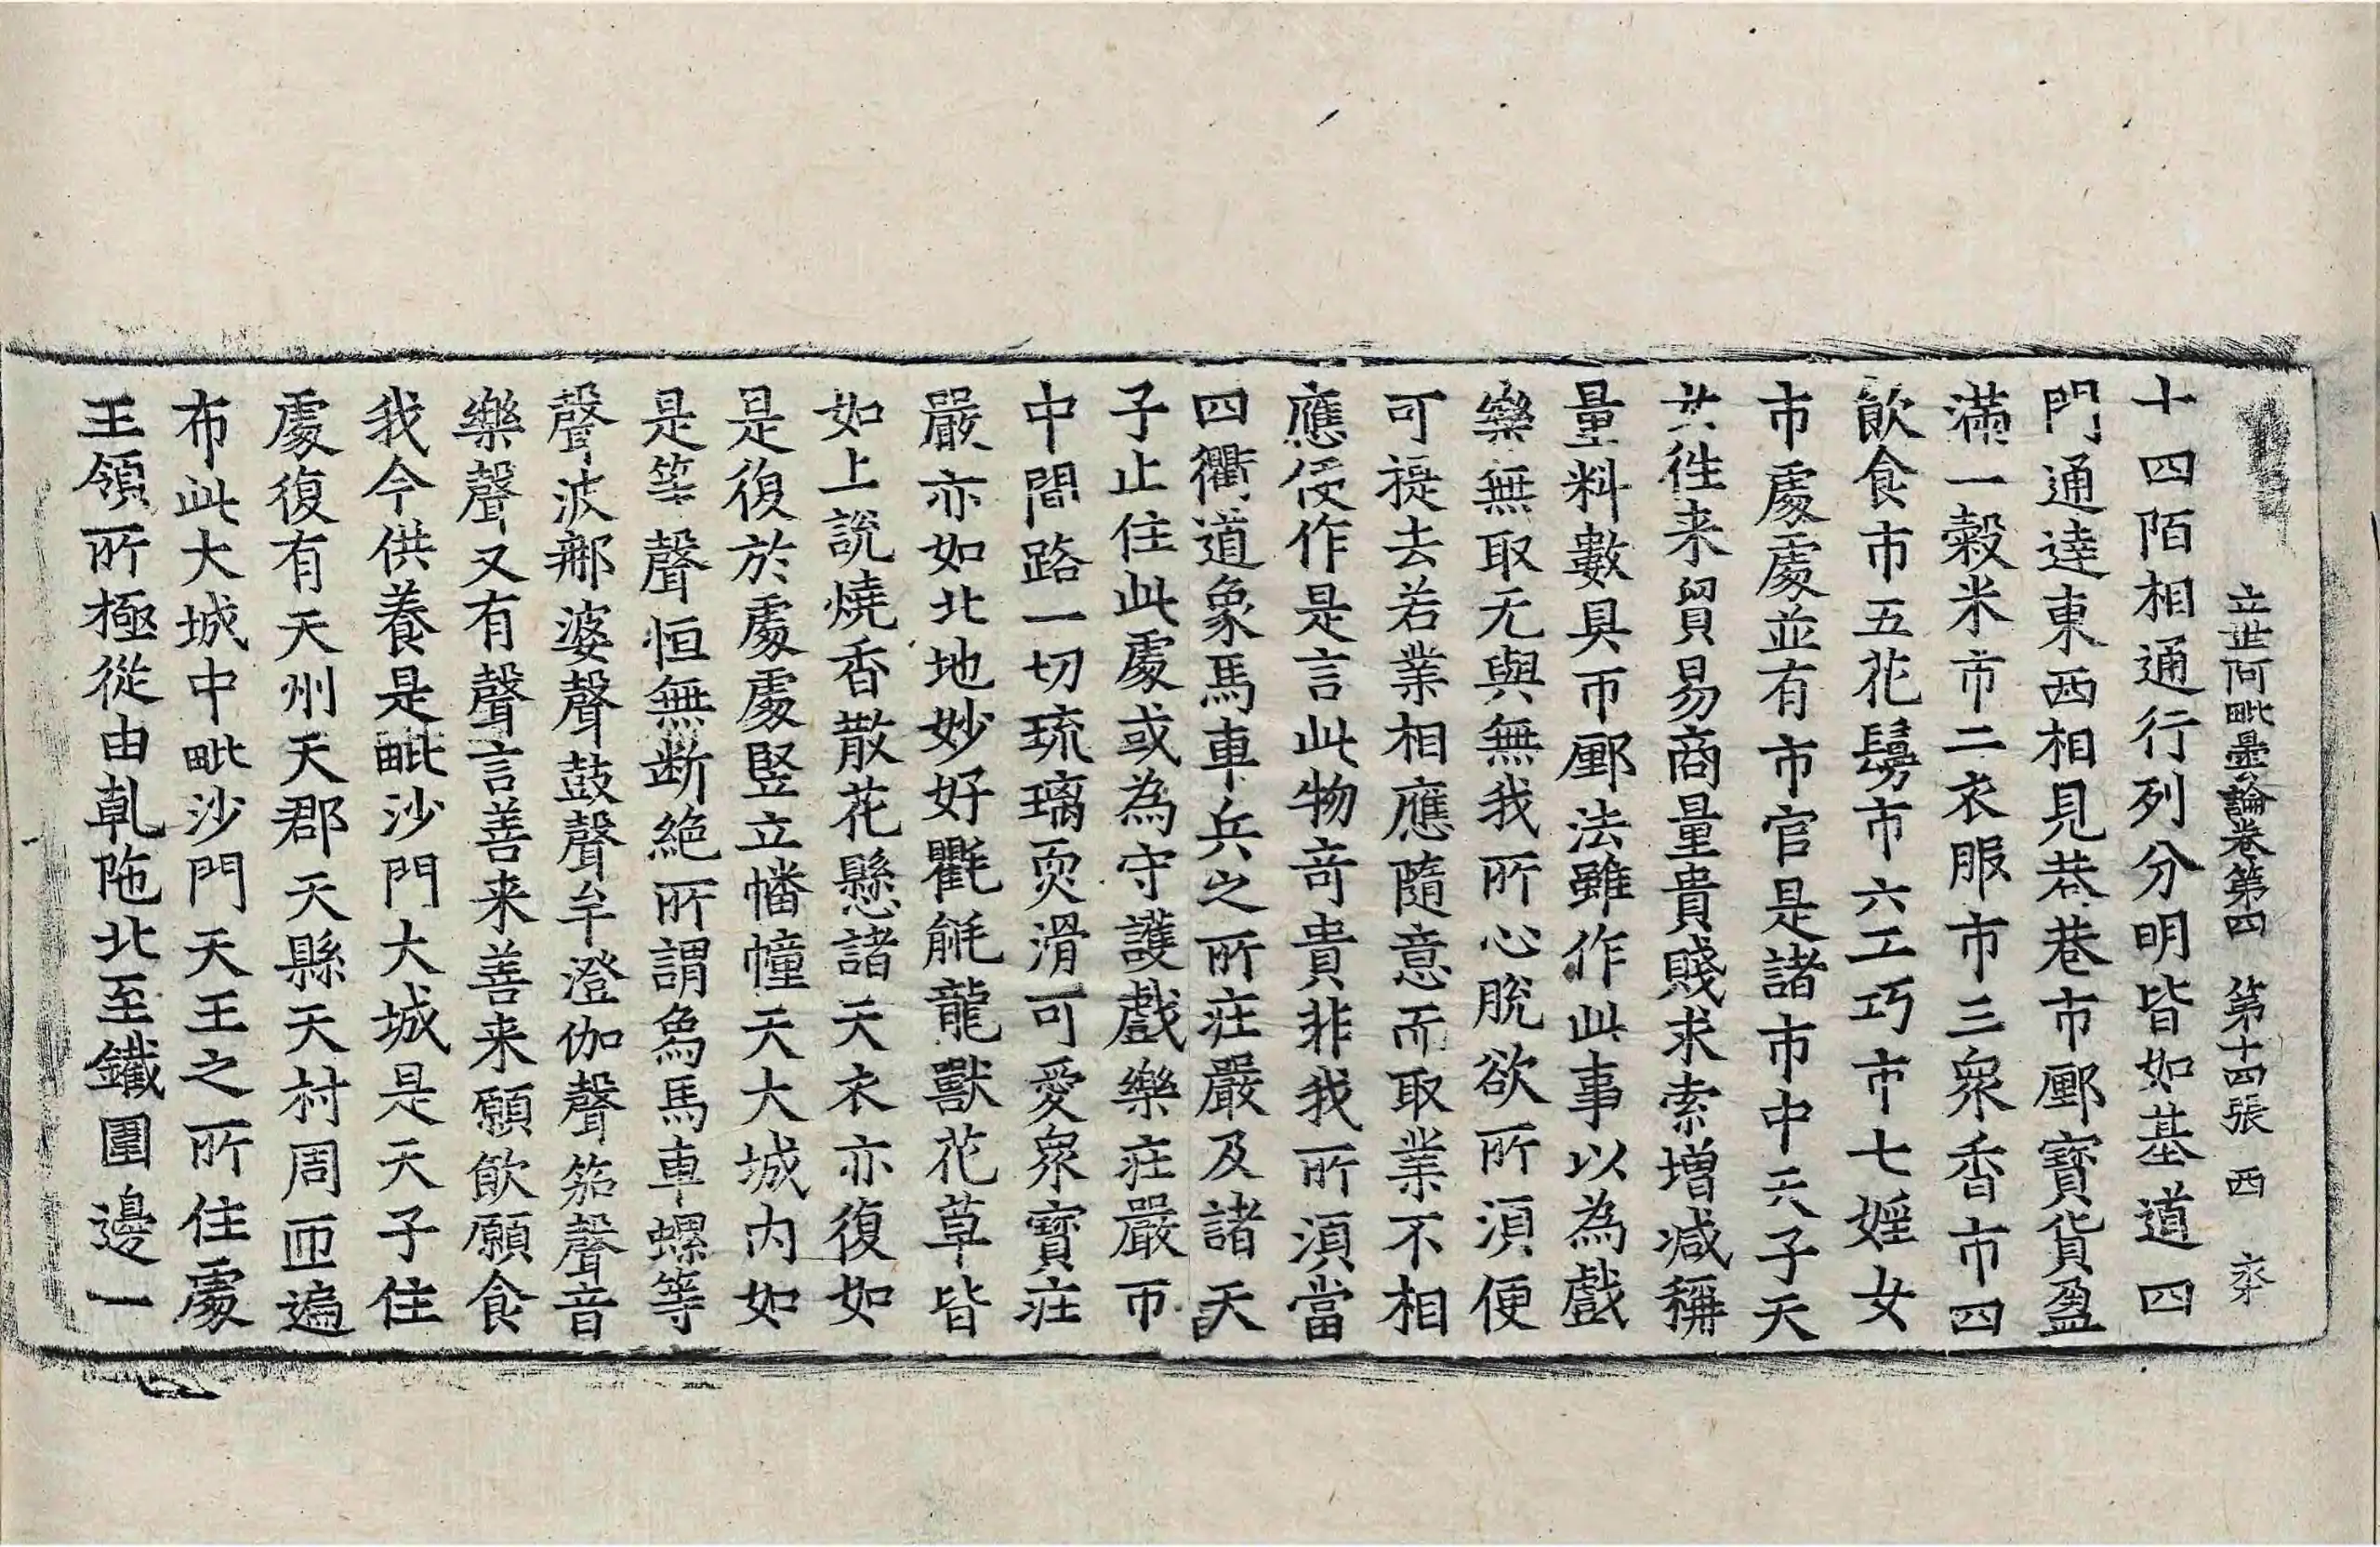 立世阿毗曇論卷第四 第十四張 西
十四陌相通行列分明皆如基道四
門通達東西相見巷巷市鄽寶貨盈
滿一穀米市二衣服市三衆香市四
飮食市五花鬘市六工巧市七婬女
市處處並有市官是諸市中天子天
女往来貿易商量貴賤求索增減稱
量料數具帀鄽法雖作此事以為戲
樂無取无與無我所心脫欲所湏便
可提去若業相應隨意而取業不相
應便作是言此物竒貴非我所湏當
四衢道象馬車兵之所莊嚴及諸天
子止住此處或為守護戲樂莊嚴帀
中間路一切琉璃耎滑可愛衆寶莊
嚴亦如北地妙好氍毹龍獸花草皆
如上說燒香散花懸諸天衣亦復如
是復於處處竪立幡幢天大城内如
是等聲恒無断絶所謂象馬車螺等
聲波那婆聲鼓聲牟澄伽聲笳聲音
樂聲又有聲言善来善来願飮願食
我今供養是毗沙門大城是天子住
處復有天州天郡天縣天村周迊遍
布此大城中毗沙門天王之所住處
王領所極從由乹陁北至鐵圍邊一